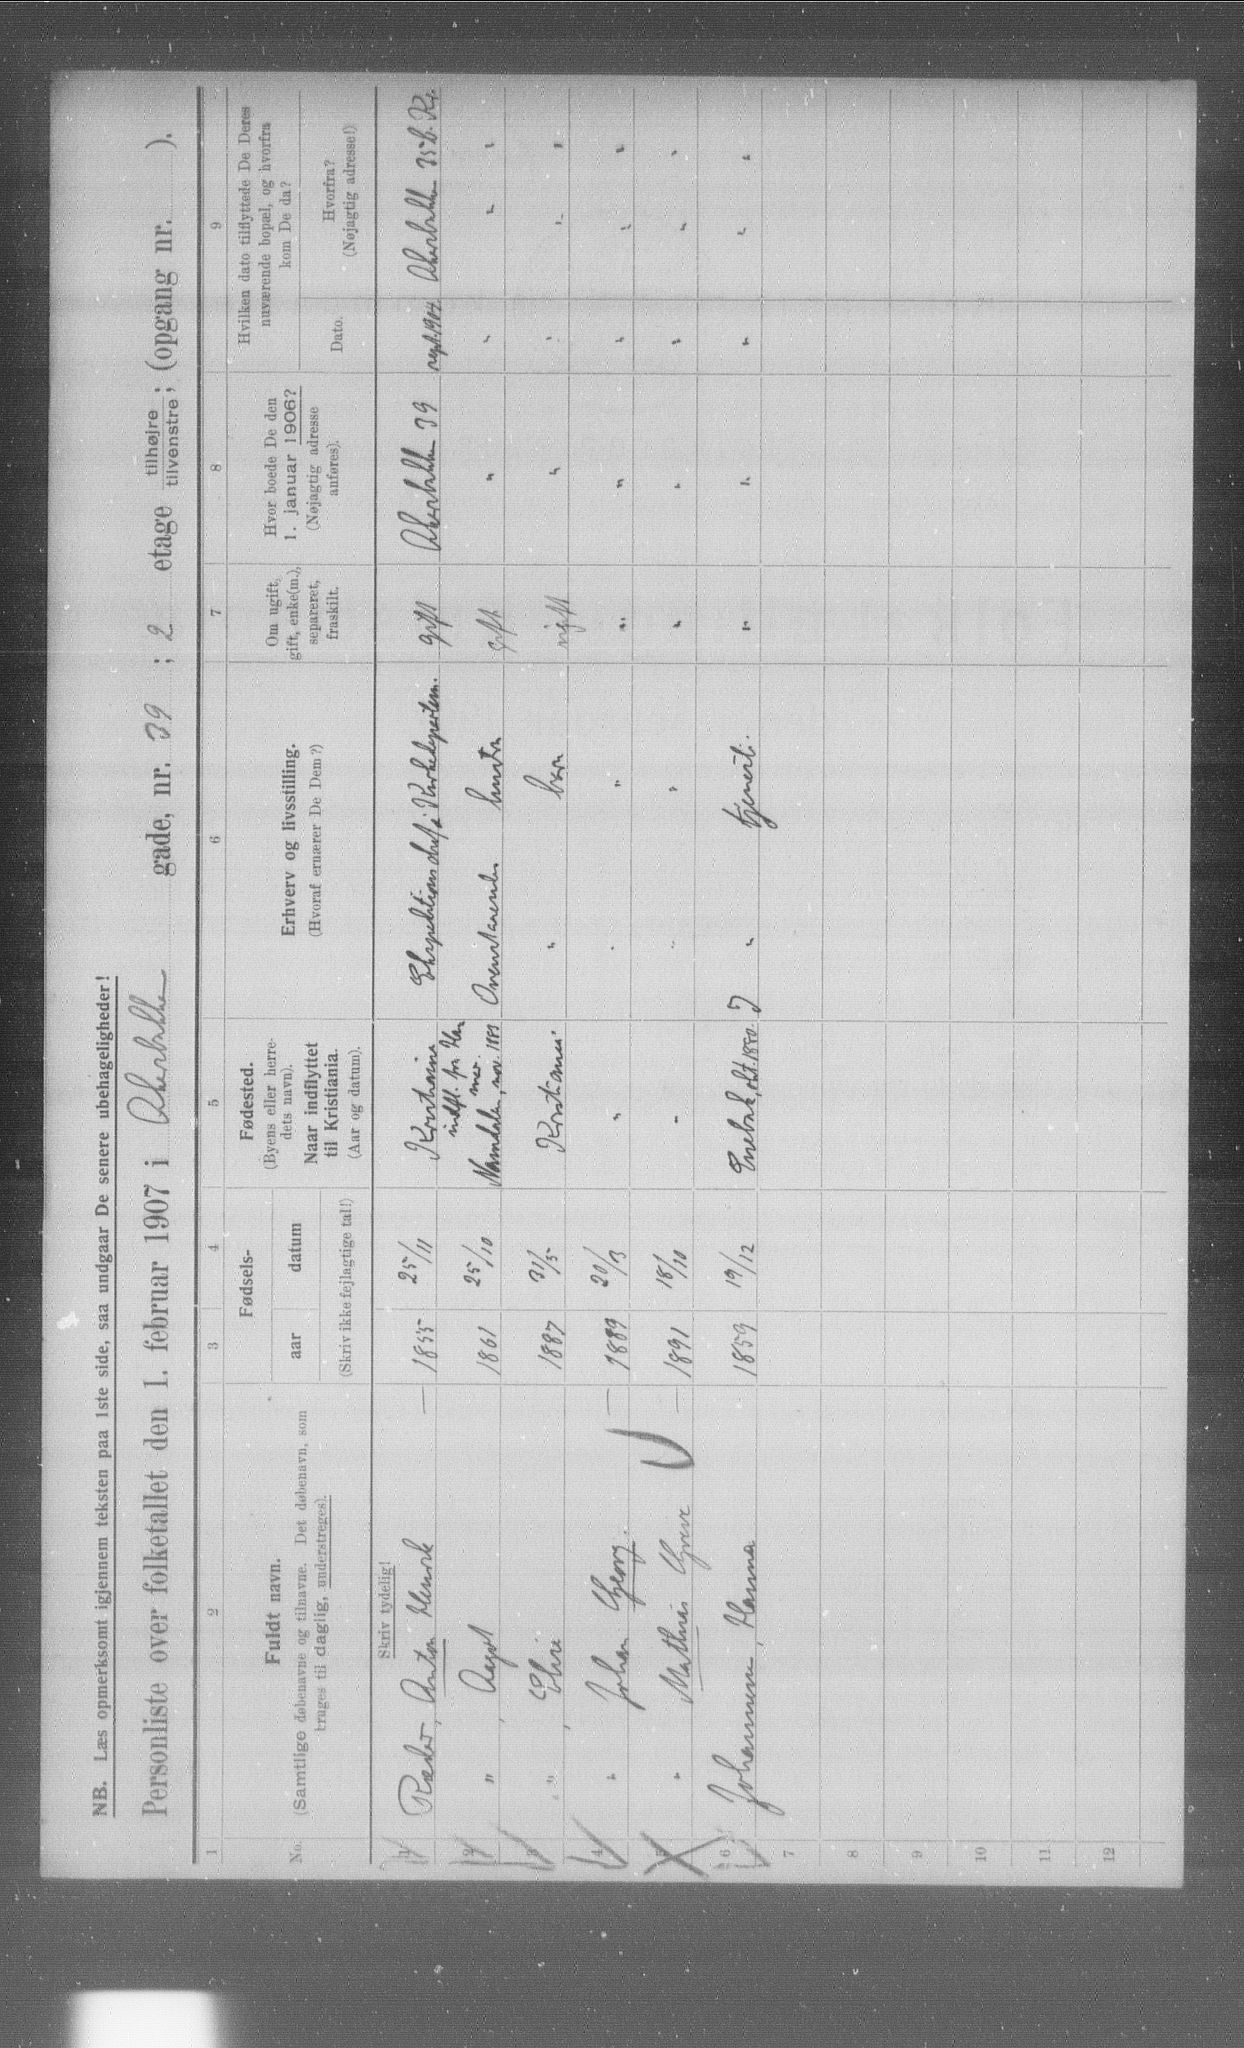 NB. Læs opmerksomt igjennem teksten paa 1ste side, saa undgaar De senere ubehageligheder!
Personliste over folketallet den 1. februar 1907 i Akersbakken gade, nr. 39 ; 2 etage tilhøjre tilvenstre ; (opgang nr. ).
1 2 3 4 5 6 7 8 9
No.
Fuldt navn.
(Samtlige døbenavne og tilnavne. Det døbenavn, som
bruges til daglig, understreges).
Fødsels-
aar datum
(Skriv ikke fejlagtige tal!)
Fødested.
(Byens eller herre-
dets navn).
Naar indflyttet
til Kristiania.
(Aar og datum).
Erhverv og livsstilling.
(Hvoraf ernærer De Dem?)
Om ugift,
gift, enke(m.),
separeret,
fraskilt.
Hvor boede De den
1. januar 1906?
(Nøjagtig adresse
anføres).
Hvilken dato tilflyttede De Deres
nuværende bopæl, og hvorfra
kom De da?
Dato.
Hvorfra?
(Nøjagtig adresse!)
Skriv tydelig!
1 Ræder, Anton Henrik 1855 25/11 Kristiania Ekspeditionschef i Kirkedepartem. gift Akersbakken 39 sept. 1904. Akersbakken 35 b. Kr.
indfl. fra
2 " , Aagot 1861 25/10 Namdalen, nov. 1883 Ovenstaaendes hustru gift " " " "
3 " , 1887 31/5 Kristiania " barn ugift " " " "
4 " Johan Georg. 1889 20/3 " " " " " " " "
5 " Mathias Greve 1891 18/10 " " " " " " " "
6 Johannesen, Hanna 1859 19/12 Enebak, okt. 1880. " tjenerti. " " " " "
7
8
9
10
11
12